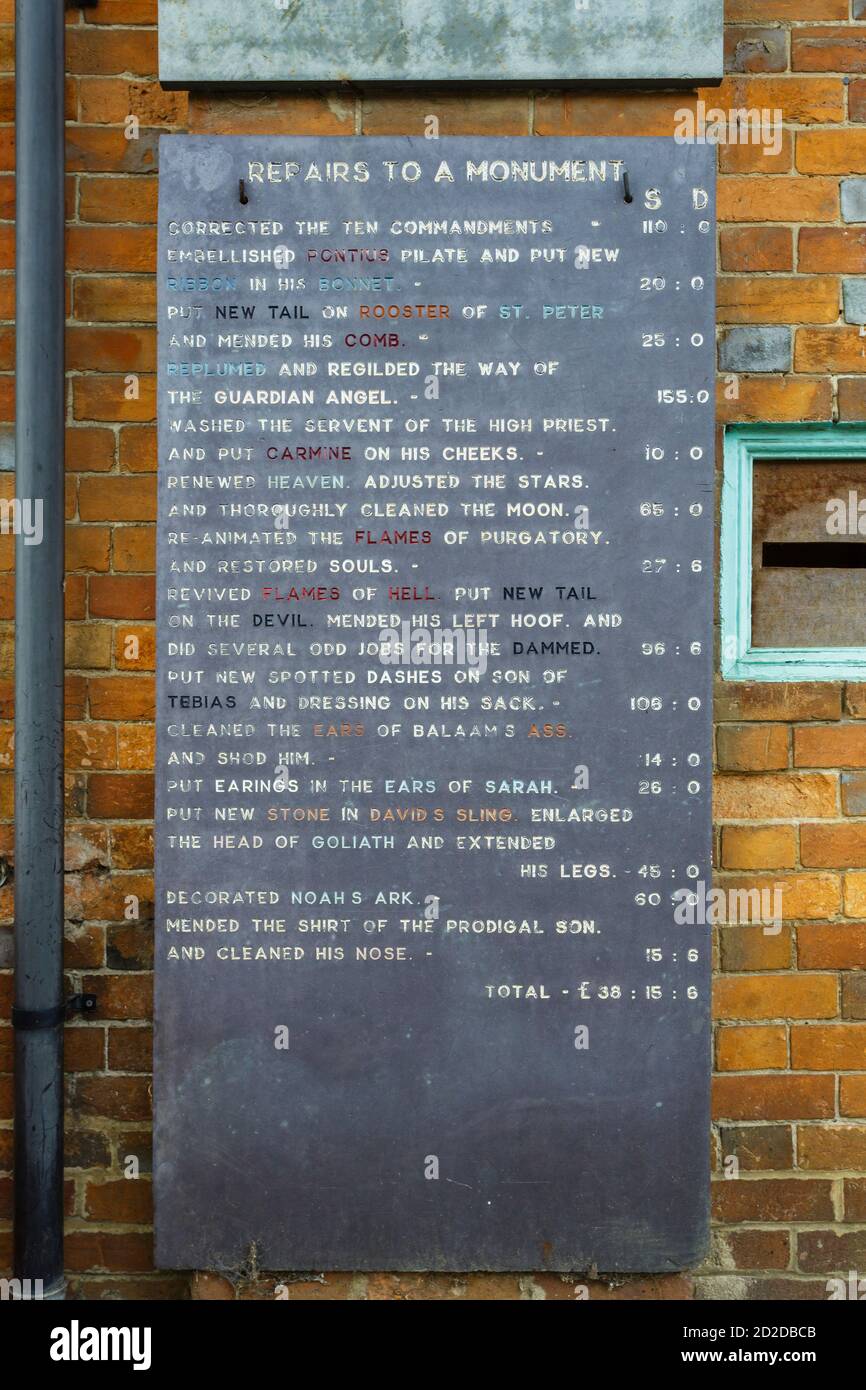 REPAIRS TO A MONUMENT
S D
CORRECTED THE TEN COMMANDMENTS - 110 : 0
EMBELLISHED PONTIUS PILATE AND PUT NEW
RIBBON IN HIS BONNET. - 20 : 0
PUT NEW TAIL ON ROOSTER OF ST. PETER
AND MENDED HIS COMB. - 25 : 0
REPLUMED AND REGILDED THE WAY OF
THE GUARDIAN ANGEL. - 155:0
WASHED THE SERVENT OF THE HIGH PRIEST.
AND PUT CARMINE ON HIS CHEEKS. - 10 : 0
RENEWED HEAVEN. ADJUSTED THE STARS.
AND THOROUGHLY CLEANED THE MOON. - 65 : 0
RE-ANIMATED THE FLAMES OF PURGATORY.
AND RESTORED SOULS. - 27 : 6
REVIVED FLAMES OF HELL. PUT NEW TAIL
ON THE DEVIL. MENDED HIS LEFT HOOF. AND
DID SEVERAL ODD JOBS FOR THE DAMMED. 96 : 6
PUT NEW SPOTTED DASHES ON SON OF
TEBIAS AND DRESSING ON HIS SACK. - 106 : 0
CLEANED THE EARS OF BALAAM'S ASS.
AND SHOD HIM. - 14 : 0
PUT EARINGS IN THE EARS OF SARAH. - 26 : 0
PUT NEW STONE IN DAVID'S SLING. ENLARGED
THE HEAD OF GOLIATH AND EXTENDED
HIS LEGS. - 45 : 0
DECORATED NOAH'S ARK. - 60 : 0
MENDED THE SHIRT OF THE PRODIGAL SON.
AND CLEANED HIS NOSE. - 15 : 6
TOTAL - £ 38 : 15 : 6
alamy
Image ID: 2D2DBCB
www.alamy.com